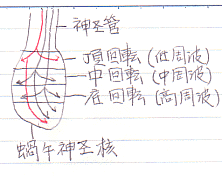 神圣管
頂回転(低周波)
中回転(中周波)
底回転(高周波)
蝸牛神圣核